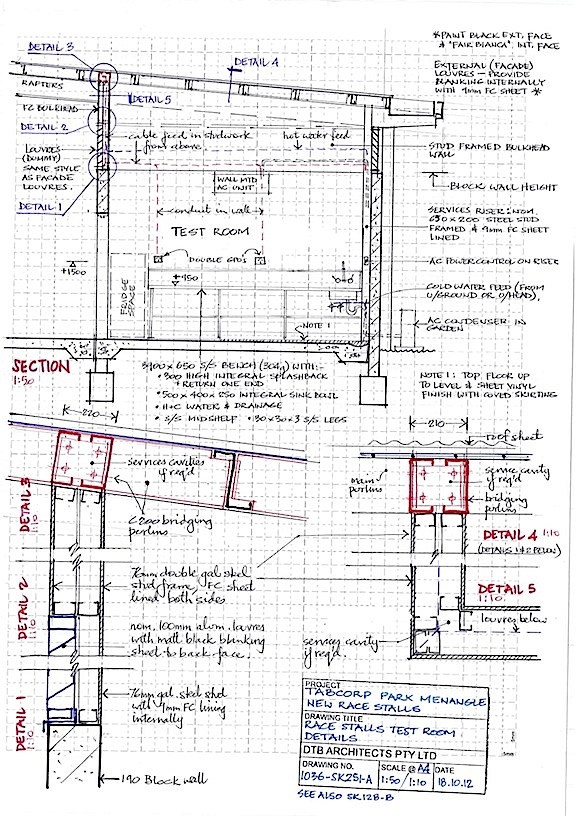 *PAINT BLACK EXT. FACE
& "FAIR BIANCA" INT. FACE
DETAIL 3
DETAIL 4
EXTERNAL (FACADE)
LOUVRES - PROVIDE
BLANKING INTERNALLY
WITH 9mm FC SHEET *
RAFTERS
DETAIL 5
FC BULKHEAD
DETAIL 2
cable feed in studwork
from above
hot water feed
LOUVRES
(DUMMY)
SAME STYLE
AS FACADE
LOUVRES.
STUD FRAMED BULKHEAD
WALL
WALL MTD
AC UNIT
BLOCK WALL HEIGHT
DETAIL 1
conduit in wall
SERVICES RISER: NOM.
200 STEEL STUD
FRAMED & 9mm FC SHEET
LINED
TEST ROOM
DOUBLE GPO'S
AC POWER CONTROL ON RISER
+1500
+950
FRIDGE
SPACE
COLD WATER FEED (FROM
U/GROUND OR O/HEAD).
NOTE 1
AC CONDENSER IN
GARDEN
SECTION
1:50
3900 x 650 S/S BENCH (304) WITH:-
• 300 HIGH INTEGRAL SPLASHBACK
+ RETURN ONE END
• 500 x 400 x 250 INTEGRAL SINK BOWL
• H+C WATER & DRAINAGE
• S/S MIDSHELF • 30x30x3 S/S LEGS
NOTE 1: TOP FLOOR UP
TO LEVEL & SHEET VINYL
FINISH WITH COVED SKIRTING
220
210
roof sheet
services cavities
if req'd
main
purlins
service cavity
if req'd
bridging
purlins
DETAIL 3
1:10
C200 bridging
purlins
DETAIL 4 1:10
(DETAILS 1 & 2 BELOW)
DETAIL 2
1:10
76mm double gal. steel
stud frame, FC sheet
lined both sides
DETAIL 5
1:10
louvres below
nom. 100mm alum. louvres
with matt black blanking
sheet to back face.
services cavity
if req'd
DETAIL 1
1:10
76mm gal. steel stud
with 9mm FC lining
internally
190 Block wall
PROJECT
TABCORP PARK MENANGLE
NEW RACE STALLS
DRAWING TITLE
RACE STALLS TEST ROOM
DETAILS
DTB ARCHITECTS PTY LTD
DRAWING NO. SCALE @ A4 DATE
1036-SK251-A 1:50/1:10 18.10.12
SEE ALSO SK128-B